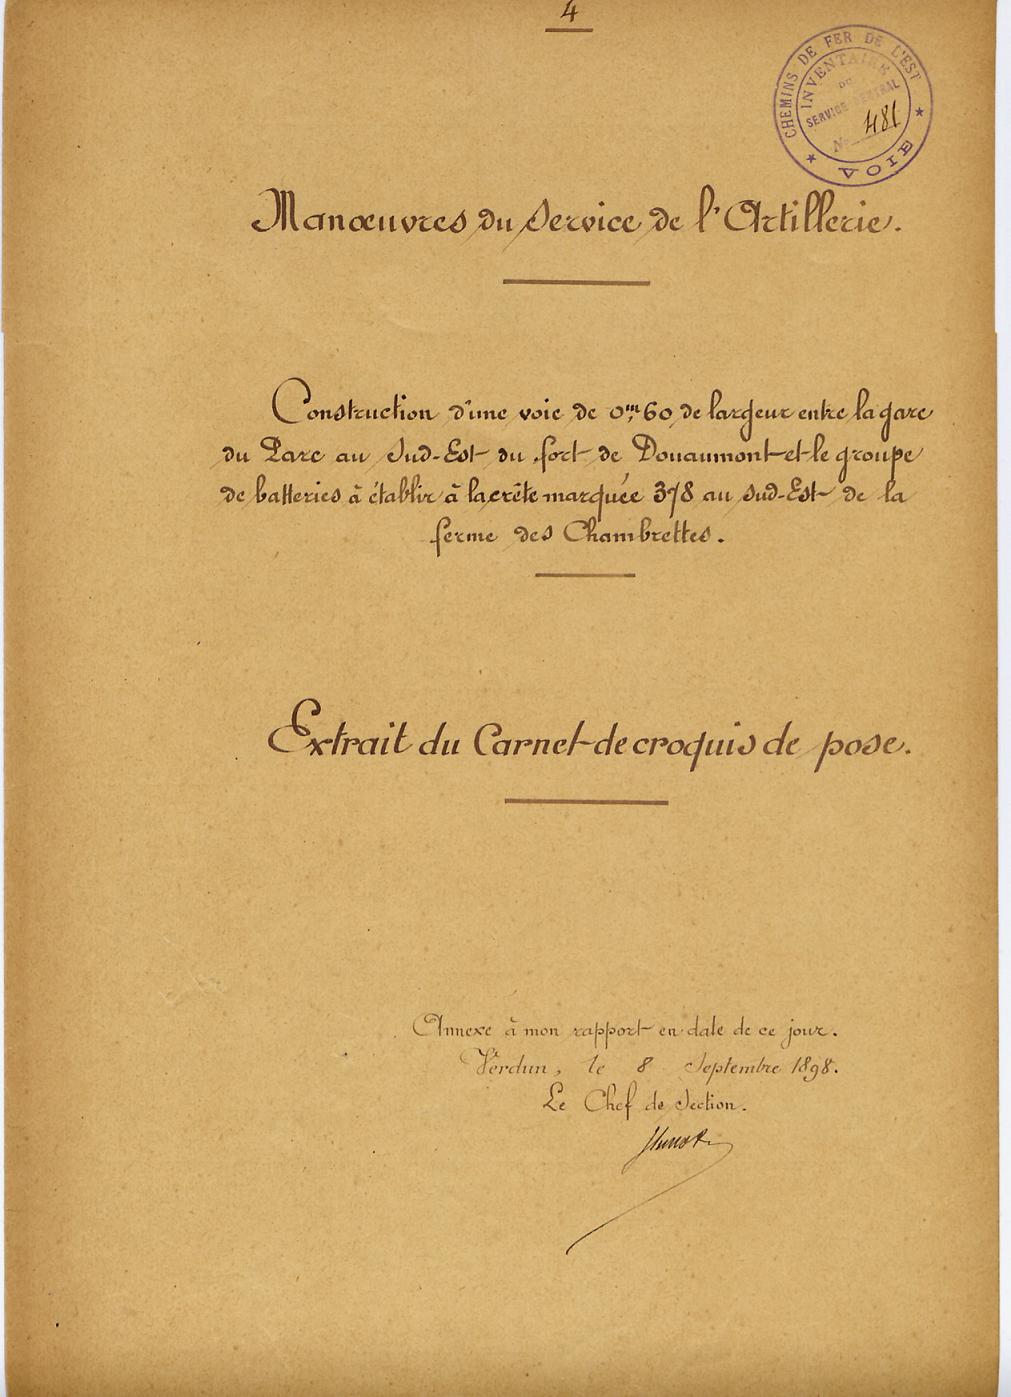 4
CHEMINS DE FER DE L'EST
INVENTAIRE
DU
SERVICE CENTRAL
N° 481
VOIE
Manœuvres du Service de l'Artillerie.
Construction d'une voie de 0,m60 de largeur entre la gare
du Parc au Sud-Est du fort de Douaumont et le groupe
de batteries à établir à la crête marquée 378 au Sud-Est de la
ferme des Chambrettes.
Extrait du Carnet de croquis de pose.
Annexe à mon rapport en date de ce jour.
Verdun, le 8 Septembre 1898.
Le Chef de Section.